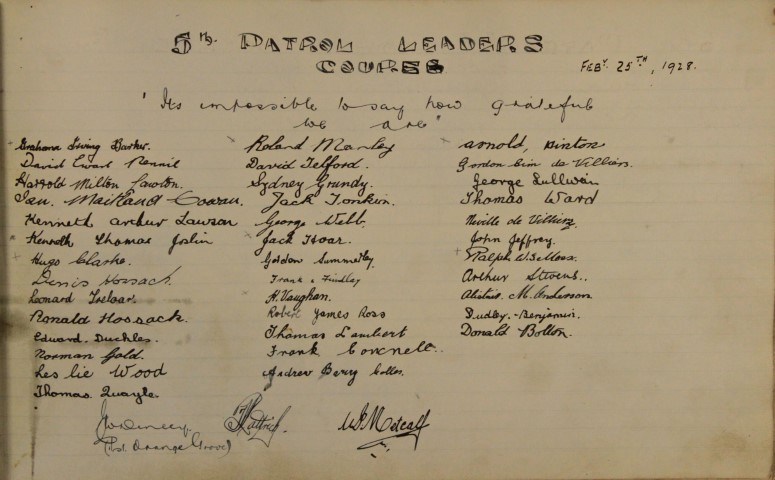 5th. PATROL LEADERS
COURSE
FEBY. 25TH, 1928.
"Its impossible to say how grateful
we are"
Graham Irving Barker.
David Ewart Rennie
Harrold Milton Lawton.
Ian. Maitland Cowan.
Kenneth Arthur Lawson
Kenneth Thomas Joslin
Hugo Clarke.
Denis Hossack.
Leonard Treloar.
Ronald Hossack.
Edward. Duckles.
Norman Gold.
Leslie Wood
Thomas. Quayle.
Roland Manley
David Telford.
Sydney Grundy.
Jack Tonkin.
George Webb.
Jack Hoar.
Gordon Summerley.
Frank Findley
H. Vaughan.
Robert James Ross
Thomas Lambert
Frank Coxnell.
Andrew Berry
Arnold, Hinton
Gordon de Villiers.
George Sullivan
Thomas Ward
Neville de Villiers
John Jeffrey.
Ralph
Arthur Stevens.
Alistair. M. Anderson
Dudley. Benjamin.
Donald Bolton.
(1st. Orange Grove)
W. Metcalf